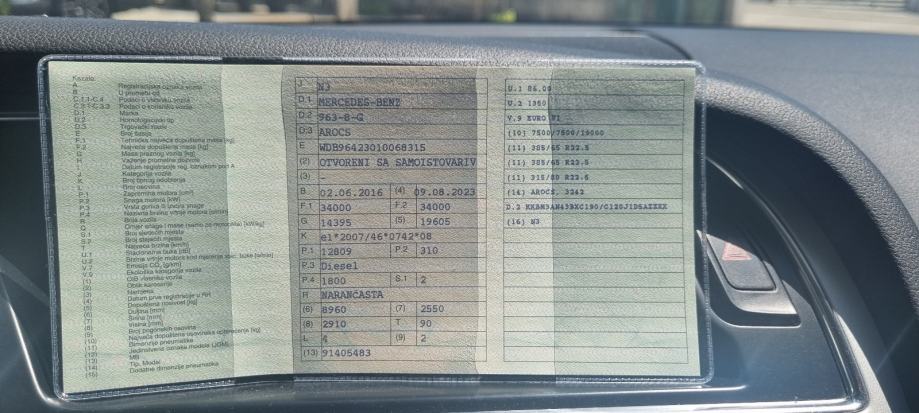 Kazalo:
A Registracijska oznaka vozila
B U prometu od
C.1.1-C.4 Podaci o vlasniku vozila
C.3.1-C.3.3 Podaci o korisniku vozila
D.1 Marka
D.2 Homologacijski tip
D.3 Trgovački naziv
E Broj šasije
F.1 Tehnički najveća dopuštena masa [kg]
F.2 Najveća dopuštena masa [kg]
G Masa praznog vozila [kg]
H Važenje prometne dozvole
J Kategorija vozila
L Broj osovina
P.1
P.2 Snaga motora [kW]
P.3 Vrsta goriva ili izvora snage
P.4
R Boja vozila
S.1 Broj sjedećih mjesta
S.2
T Najveća brzina [km/h]
U.1 Stacionarna buka [dB]
U.2
V.7 Emisija CO₂ [g/km]
V.9 Ekološka kategorija vozila
(1) OIB vlasnika vozila
(2) Oblik karoserije
(3) Namjena
(4) Datum prve registracije u RH
(5) Dopuštena nosivost [kg]
(6) Duljina [mm]
(7) Širina [mm]
(8) Visina [mm]
(9) Broj pogonskih osovina
(10) Najveća dopuštena osovinska opterećenja [kg]
(11) Dimenzije pneumatika
(12)
(13)
(14) Tip, Model
(15) Dodatne dimenzije pneumatika
J N3
D.1 MERCEDES-BENZ
D.2 963-8-G
D.3 AROCS
E WDB96423010068315
(2) OTVORENI SA SAMOISTOVARIV
(3) -
B 02.06.2016 (4) 09.08.2023
F.1 34000 F.2 34000
G 14395 (5) 19605
K e1*2007/46*0742*08
P.1 12809 P.2 310
P.3 Diesel
P.4 1800 S.1 2
R NARANČASTA
(6) 8960 (7) 2550
(8) 2910 T 90
L 4 (9) 2
(13) 91405483
U.1 86.00
U.2 1350
V.9 EURO VI
(10) 7500/7500/19000
(11) 385/65 R22.5
(11) 385/65 R22.5
(11) 315/80 R22.5
(14) AROCS, 3242
(16) N3